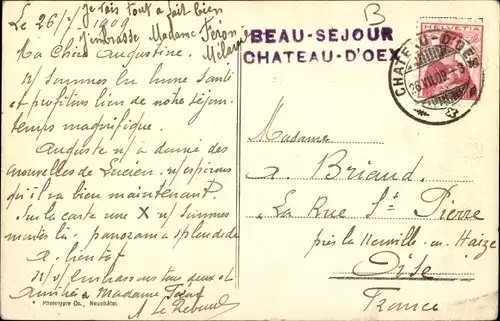 Le 26/7 1909
Je vais tout à fait bien
J'embrasse Madame Féron
Mélanie
B
BEAU-SÉJOUR
CHATEAU-D'OEX
HELVETIA
CHATEAU-D'OEX
26.VII.09
Ma Chère Augustine.
n/ sommes en bonne santé
et profitons bien de notre séjour.
temps magnifique.
Auguste n/ a donné des
nouvelles de Lucien. n/ espérons
qu'il va bien maintenant.
Sur la carte une X n/ sommes
montés là - panorama splendide
a bientôt
n/ v/ embrassons tous deux et
amitiés à Madame Féron
Phototypie Co., Neuchâtel.
Madame
A. Briaud
La Rue St Pierre
près la Neuville-en-Haize
Oise
France